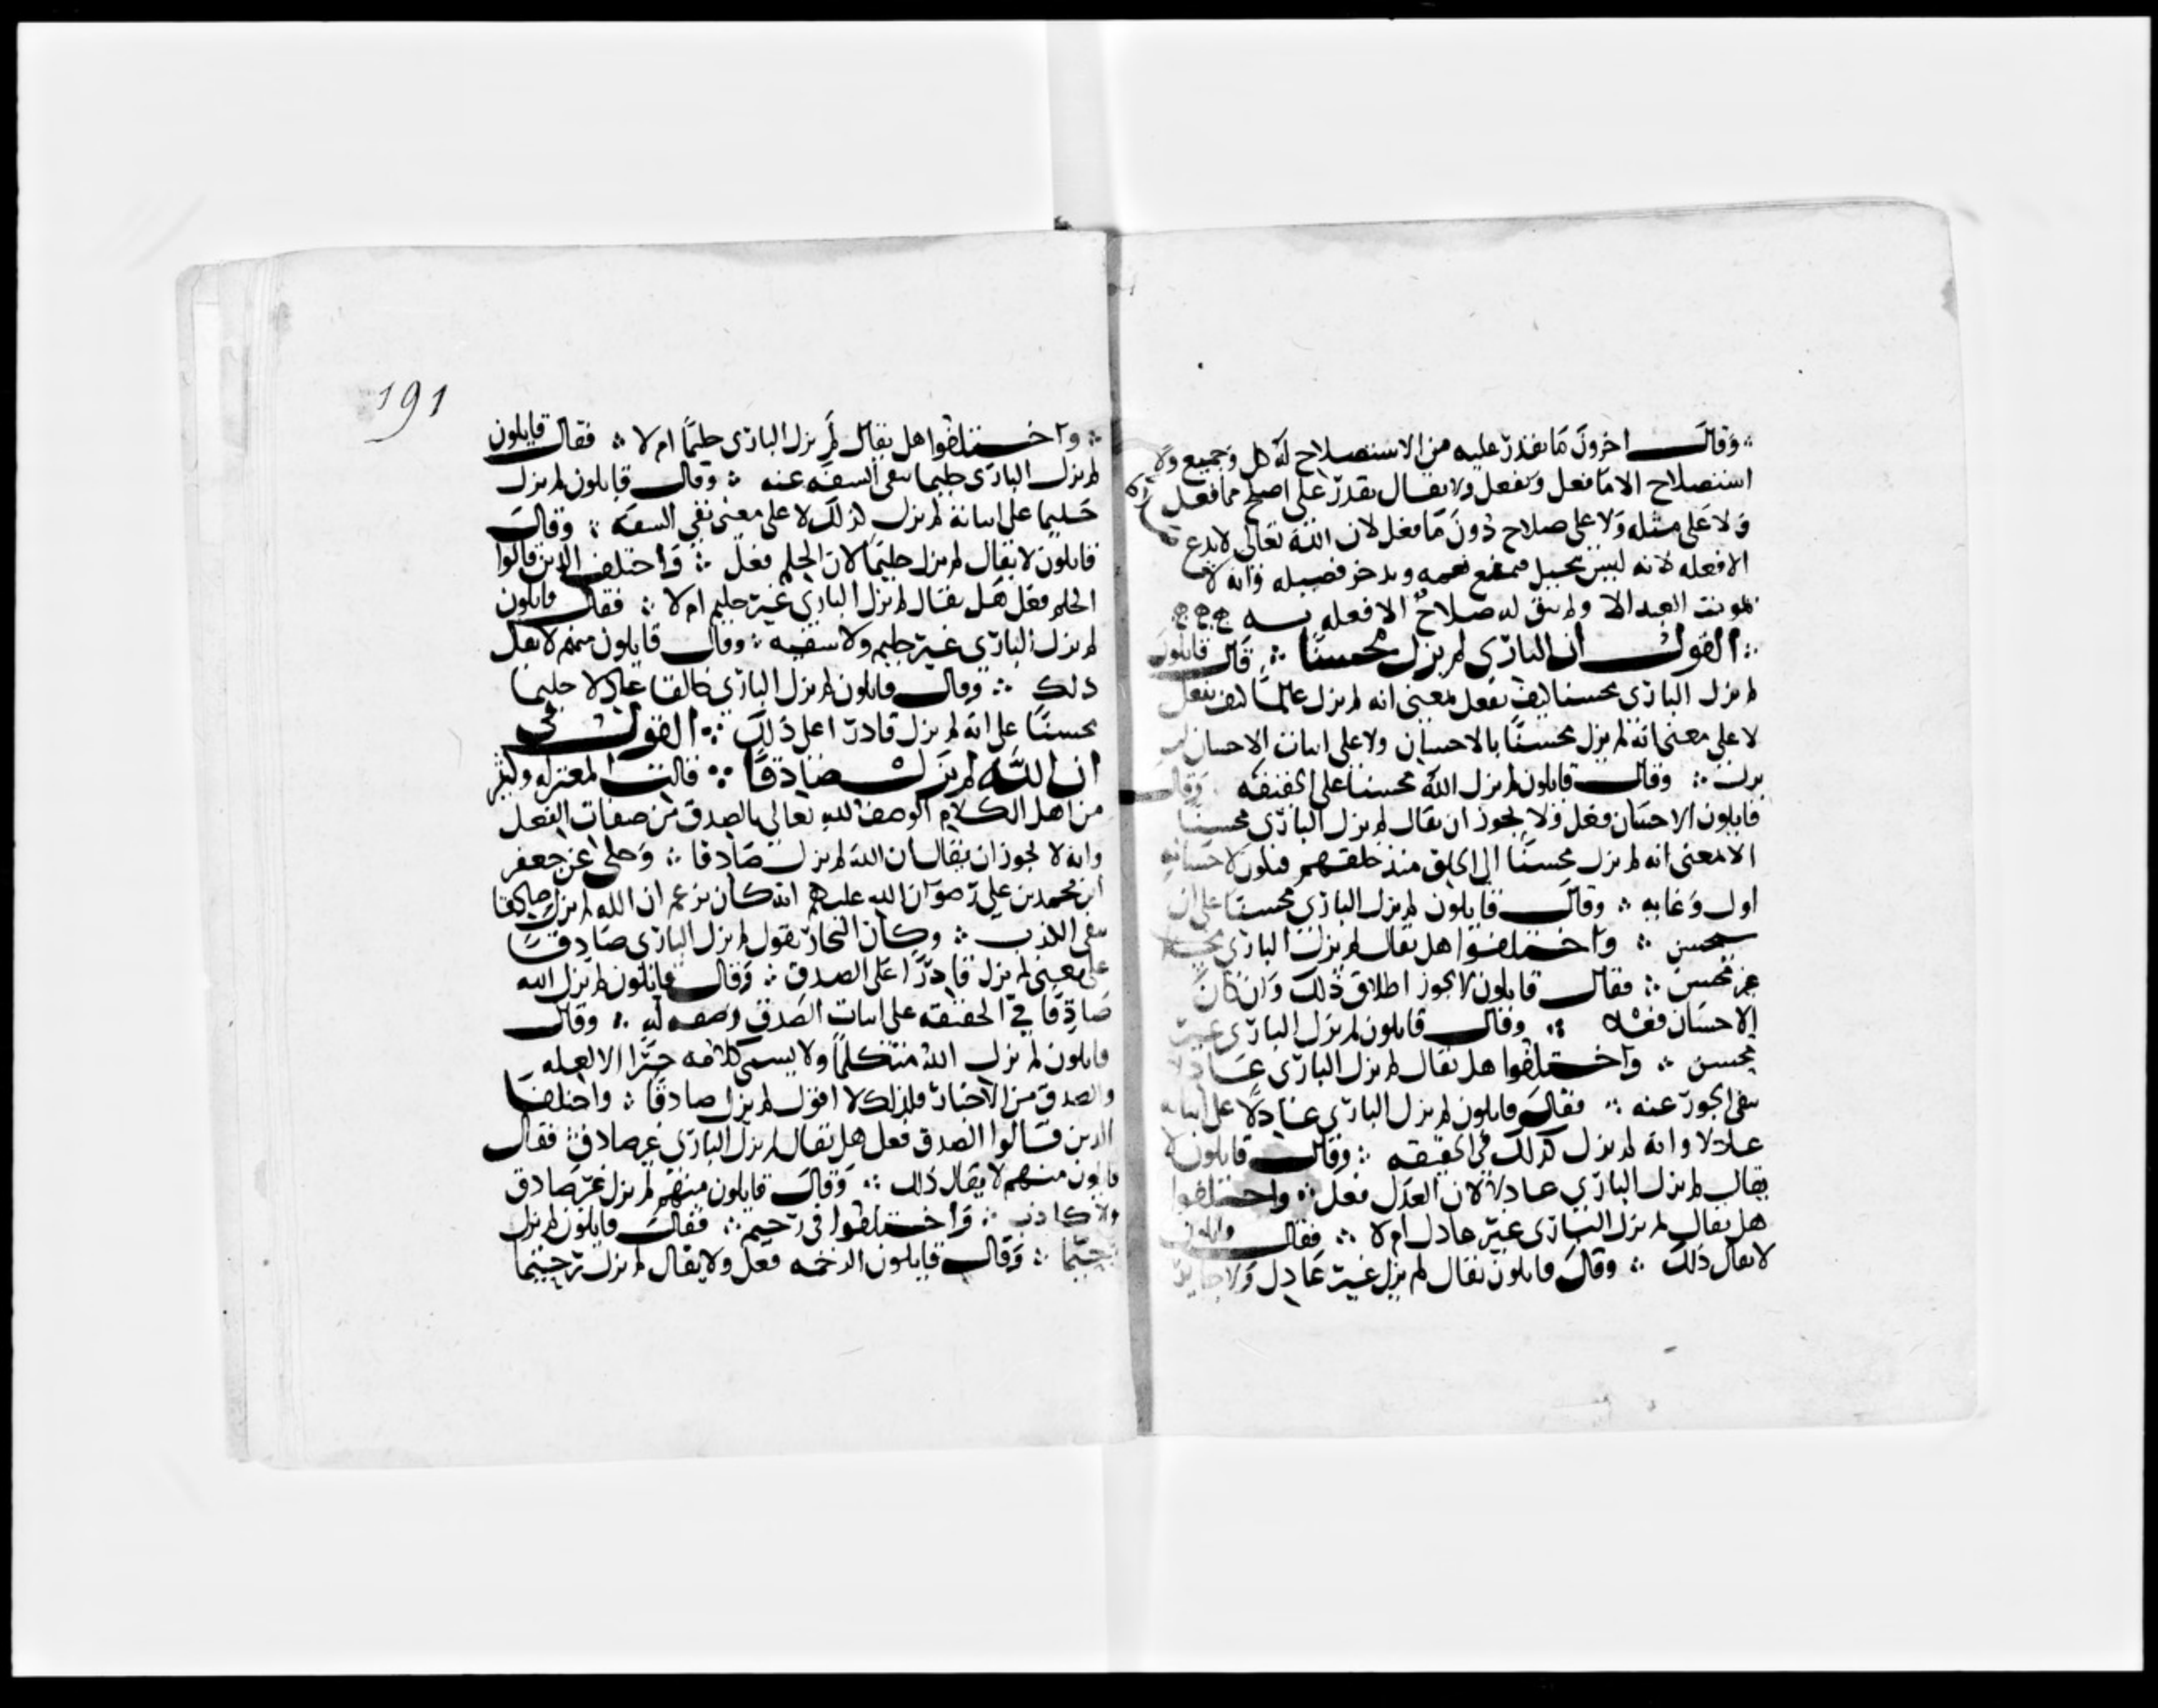 وقال اخرون ما يقدر عليه من الاستصلاح له كل وجميع ولا
استصلاح الا ما فعل ويفعل ولا يقال يقدر على اصلح مما فعل
ولا على مثله ولا على صلاح دون ما فعل لان الله تعالى لا يدع
الا فعله لانه ليس ببخيل فيمنع نعمه ويدخر فضيله وانه لا
يموت العبد الا ولم يبق له صلاح الا فعله به
القول ان البارى لم يزل محسنا قال قايلون
لم يزل البارى محسنا كيف يفعل بمعنى انه لم يزل عالما كيف يفعل
لا على معنى انه لم يزل محسنا بالاحسان ولا على اثبات الاحسان لم
يزل وقال قايلون لم يزل الله محسنا على الحقيقه وقال
قايلون الاحسان فعل ولا يجوز ان يقال لم يزل البارى محسنا
الا بمعنى انه لم يزل محسنا الى الخلق منذ خلقهم فيكون لاحسانه
اول وغايه وقال قايلون لم يزل البارى محسنا على ان
سيحسن واختلفوا هل يقال لم يزل البارى
غير محسن فقال قايلون لا يجوز اطلاق ذلك وان كان
الاحسان فعله وقال قايلون لم يزل البارى غير
محسن واختلفوا هل يقال لم يزل البارى عادلا
بنفى الجور عنه فقال قايلون لم يزل البارى عادلا على اثباته
عادلا وانه لم يزل كذلك فى الحقيقه وقال قايلون لا
يقال لم يزل البارى عادلا لان العدل فعل واختلفوا
هل يقال لم يزل البارى غير عادل ام لا فقال قايلون
لا يقال ذلك وقال قايلون يقال لم يزل غير عادل ولا جاير
191
واختلفوا هل يقال لم يزل البارى حليما ام لا فقال قايلون
لم يزل البارى حليما بنفى السفه عنه وقال قايلون لم يزل
حليما على اثباته لم يزل كذلك لا على معنى نفى السفه وقال
قايلون لا يقال لم يزل حليما لان الحلم فعل واختلف الذين قالوا
الحلم فعل هل يقال لم يزل البارى غير حليم ام لا فقال قايلون
لم يزل البارى غير حليم ولا سفيه وقال قايلون منهم لا يقال
ذلك وقال قايلون لم يزل البارى خالقا عادلا حليما
محسنا على انه لم يزل قادرا على ذلك القول فى
ان الله لم يزل صادقا قالت المعتزله وكثير
من اهل الكلام الوصف لله تعالى بالصدق من صفات الفعل
وانه لا يجوز ان يقال ان الله لم يزل صادقا وحكى عن جعفر
ابن محمد بن على رضوان الله عليهم انه كان يزعم ان الله لم يزل صادقا
بنفى الكذب وكان النجار يقول لم يزل البارى صادقا
على معنى لم يزل قادرا على الصدق وقال قايلون لم يزل الله
صادقا في الحقيقه على اثبات الصدق وصفه له وقال
قايلون لم يزل الله متكلما ولا يسمى كلامه خبرا الا لعله
والصدق من الاخبار فلذلك لا اقول لم يزل صادقا واختلف
الذين قالوا الصدق فعل هل يقال لم يزل البارى غير صادق فقال
قايلون منهم لا يقال ذلك وقال قايلون منهم لم يزل غير صادق
ولا كاذب واختلفوا في رحيم فقال قايلون لم يزل
رحيما وقال قايلون الرحمه فعل ولا يقال لم يزل رحيما